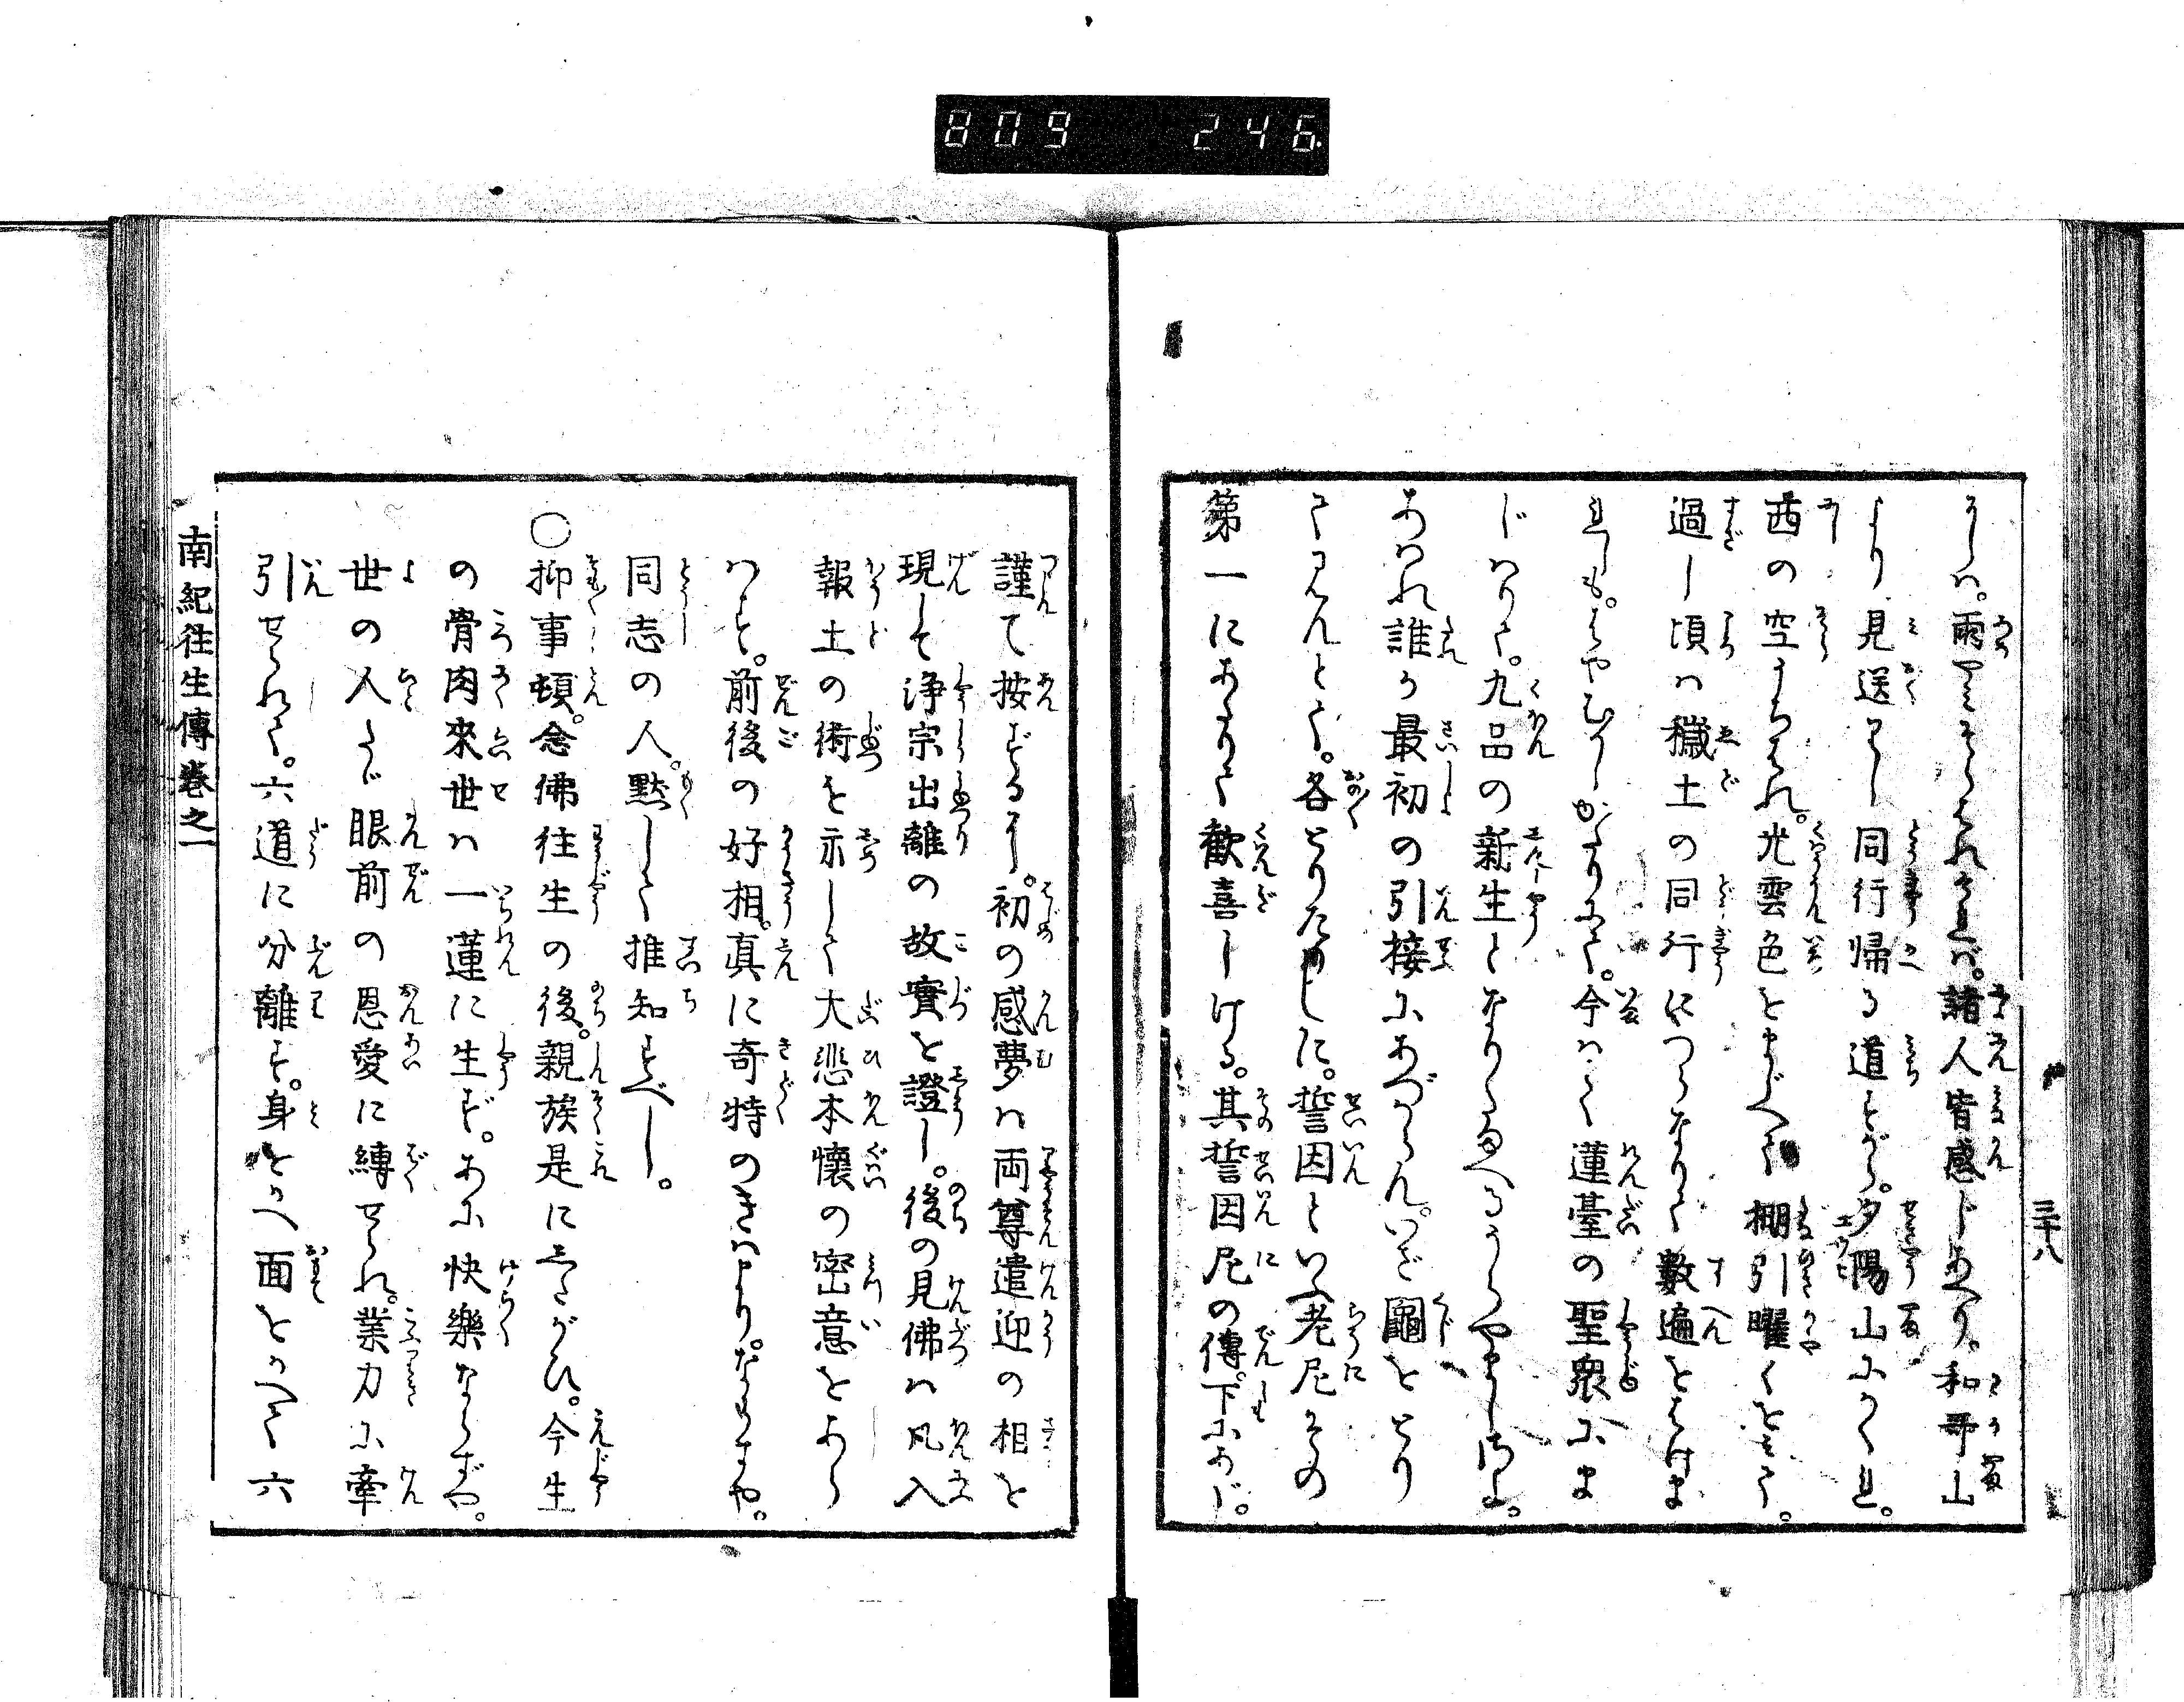 809 246
三十八
りしハ。雨やミそらはれけれバ。諸人皆感じあへり。和哥山
より見送りし同行帰る道すがら。夕陽山にかくれ。
西の空うちはれ。光雲色をまじへて棚引曜くをミて。
過し頃ハ穢土の同行につらなりて数遍をはげま
れしも。はやむかしがたりにて。今ハはや蓮臺の聖衆にま
じハりて。九品の新生となり給へるうらやましさよ。
あハれ誰か最初の引接にあづからん。いざ鬮をとり
さだめんとて。各とりたりしに。誓因といへる老尼その
第一にあたりて歓喜しける。其誓因尼の傳。下にあり。
謹て按ずるに。初の感夢ハ両尊遣迎の相を
現して浄宗出離の故實を證し。後の見佛ハ凡入
報土の術を示して大悲本懐の密意をあら
ハす。前後の好相。真に奇特のきハまり。なるをや。
同志の人。黙して推知すべし。
○抑事頓。念佛往生の後。親族是にしたがひ。今生
の骨肉來世ハ一蓮に生ず。あに快樂ならずや。
世の人たゞ眼前の恩愛に縛せられ。業力に牽
引せられて。六道に分離す。身をかへ面をかへて六
南紀往生傳巻之一